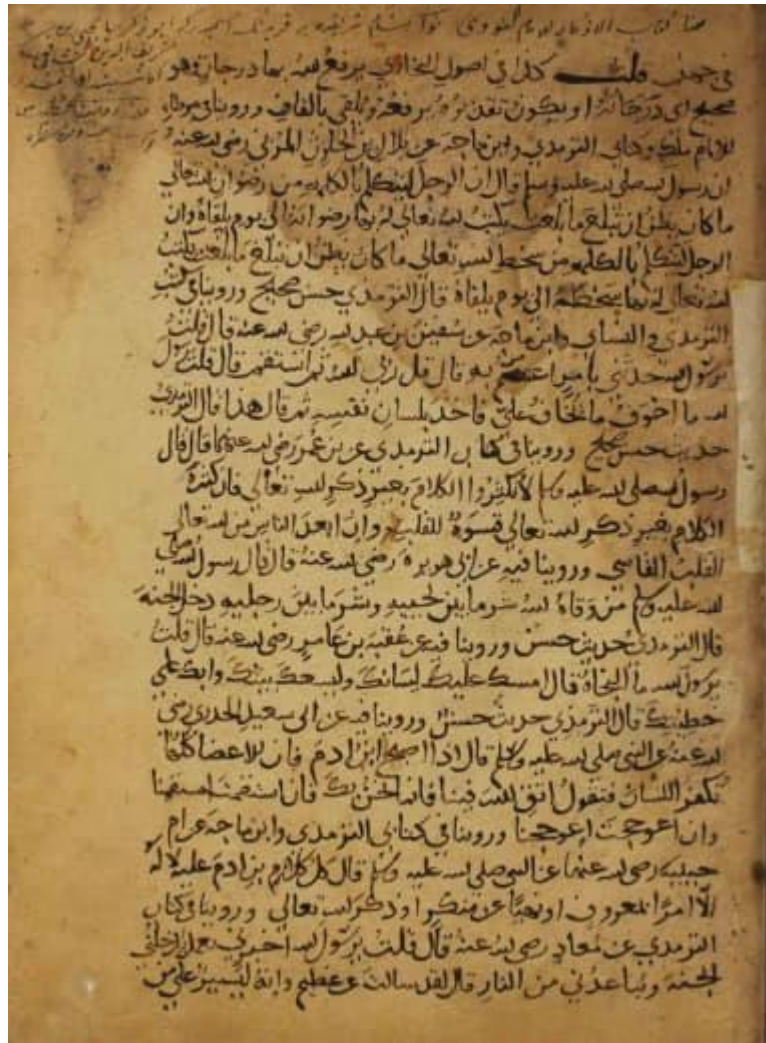 هذا كتاب الاذكار للامام النووي
في جهنم قلت كذا في اصول البخاري يرفع الله بها درجات وهو
صحيح اي درجاته او يكون تقديره يرفعه ويلقي بالقاف وروينا في موطأ
الامام ملك وكتابي الترمذي وابن ماجه عن بلال بن الحارث المزني رضي الله عنه
ان رسول الله صلى الله عليه وسلم قال ان الرجل ليتكلم بالكلمة من رضوان الله تعالى
ما كان يظن ان تبلغ ما بلغت يكتب الله تعالى له بها رضوانه الى يوم يلقاه وان
الرجل ليتكلم بالكلمة من سخط الله تعالى ما كان يظن ان تبلغ ما بلغت يكتب
الله تعالى له بها سخطه الى يوم يلقاه قال الترمذي حسن صحيح وروينا في كتب
الترمذي والنساي وابن ماجه عن سفين بن عبد الله رضي الله عنه قال قلت
يرسول الله حدثني بامر اعتصم به قال قل ربي الله ثم استقم قال قلت يرسول
الله ما اخوف ما تخاف علي فاخذ بلسان نفسه ثم قال هذا قال الترمذي
حديث حسن صحيح وروينا في كتاب الترمذي عن بن عمر رضي الله عنهما قال قال
رسول الله صلى الله عليه وسلم لا تكثروا الكلام بغير ذكر الله تعالى فان كثرة
الكلام بغير ذكر الله تعالى قسوة للقلب وان ابعد الناس من الله تعالى
القلب القاسي وروينا فيه عن ابي هريرة رضي الله عنه قال قال رسول الله صلى
الله عليه وسلم من وقاه الله شر ما بين لحييه وشر ما بين رجليه دخل الجنة
قال الترمذي حديث حسن وروينا فيه عن عقبة بن عامر رضي الله عنه قال قلت
يرسول الله ما النجاة قال امسك عليك لسانك وليسعك بيتك وابك على
خطيتك قال الترمذي حديث حسن وروينا فيه عن ابي سعيد الخدري رضي
الله عنه عن النبي صلى الله عليه وسلم قال اذا اصبح ابن ادم فان الاعضا كلها
تكفر اللسان فتقول اتق الله فينا فانما نحن بك فان استقمت استقمنا
وان اعوججت اعوججنا وروينا في كتابي الترمذي وابن ماجه عن ام
حبيبه رضي الله عنها عن النبي صلى الله عليه وسلم قال كل كلام بن ادم عليه لا له
الا امرا بمعروف او نهيا عن منكر او ذكر الله تعالى وروينا في كتاب
الترمذي عن معاذ رضي الله عنه قال قلت يرسول الله اخبرني بعمل يدخلني
الجنة ويباعدني من النار قال لقد سالت عن عظيم وانه ليسير على من